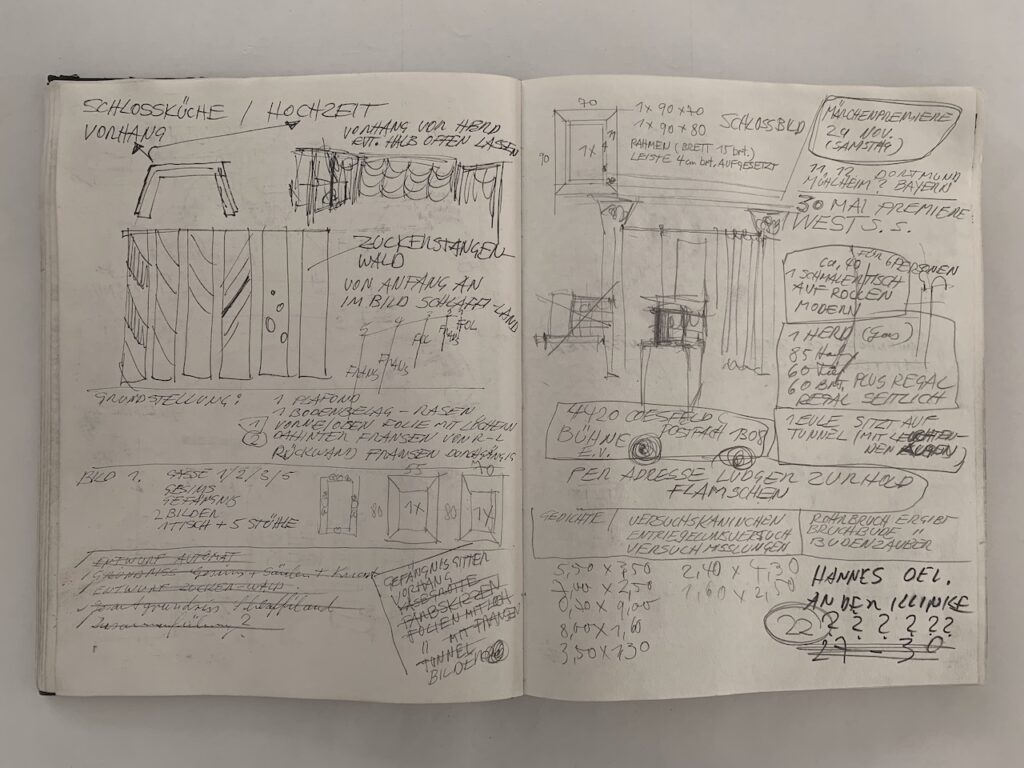 SCHLOSSKÜCHE / HOCHZEIT
VORHANG
VORHANG VOR HERD
EVT. HALB OFFEN LASSEN
ZUCKERSTANGEN
WALD
VON ANFANG AN
IM BILD SCHLAFFI-LAND
GRUNDSTELLUNG:
1 PLAFOND
1 BODENBELAG - RASEN
1 VORNE/OBEN FOLIE MIT LÖCHERN
2 DAHINTER FRANSEN VON R-L
RÜCKWAND FRANSEN DURCHGÄNGIG
BILD 1.
GASSE 1/2/3/5
GEFÄNGNIS
2 BILDER
1 TISCH + 5 STÜHLE
55
70
80
1X
80
1X
ENTWURF AUTOMAT
ENTWURF ZUCKER WALD
GEFÄNGNISGITTER
VORHANG
FARBSKIZZEN
FOLIEN MIT LOCH
MIT FRANSEN
"
TUNNEL
BILDER
70
90
1X
1X 90X70
1X 90X80
SCHLOSSBILD
RAHMEN (BRETT 15 brt.)
LEISTE 4 cm brt. AUFGESETZT
MÄRCHENPREMIERE
29 NOV.
(SAMSTAG)
11, 12 DORTMUND
MÜHLHEIM? BAYERN
30 MAI PREMIERE
WEST S. S.
FÜR 6 PERSONEN
ca. 40
1 SCHMALEN TISCH
AUF ROLLEN
MODERN
1 HERD (Gas)
85
60
60 BRT. PLUS REGAL
REGAL SEITLICH
1 EULE SITZT AUF
TUNNEL (MIT LEUCHTEN-
NEN AUGEN)
4420 COESFELD
BÜHNE POSTFACH 1308
E.V.
PER ADRESSE LUDGER ZURHOLD
FLAMSCHEN
GEDICHTE
VERSUCHSKANINCHEN
ENTRIEGELUNGSVERSUCH
VERSUCH MISSLUNGEN
ROHRBRUCH ERGIBT
BRUCHBUDE
BUDENZAUBER
5,50 X 3,50
2,40 X 4,30
7,40 X 2,50
1,60 X 2,50
0,50 X 9,00
8,00 X 1,60
3,50 X 7,30
HANNES OEL.
AN DER ILLINKE
22
? ? ? ? ? ?
27 - 30